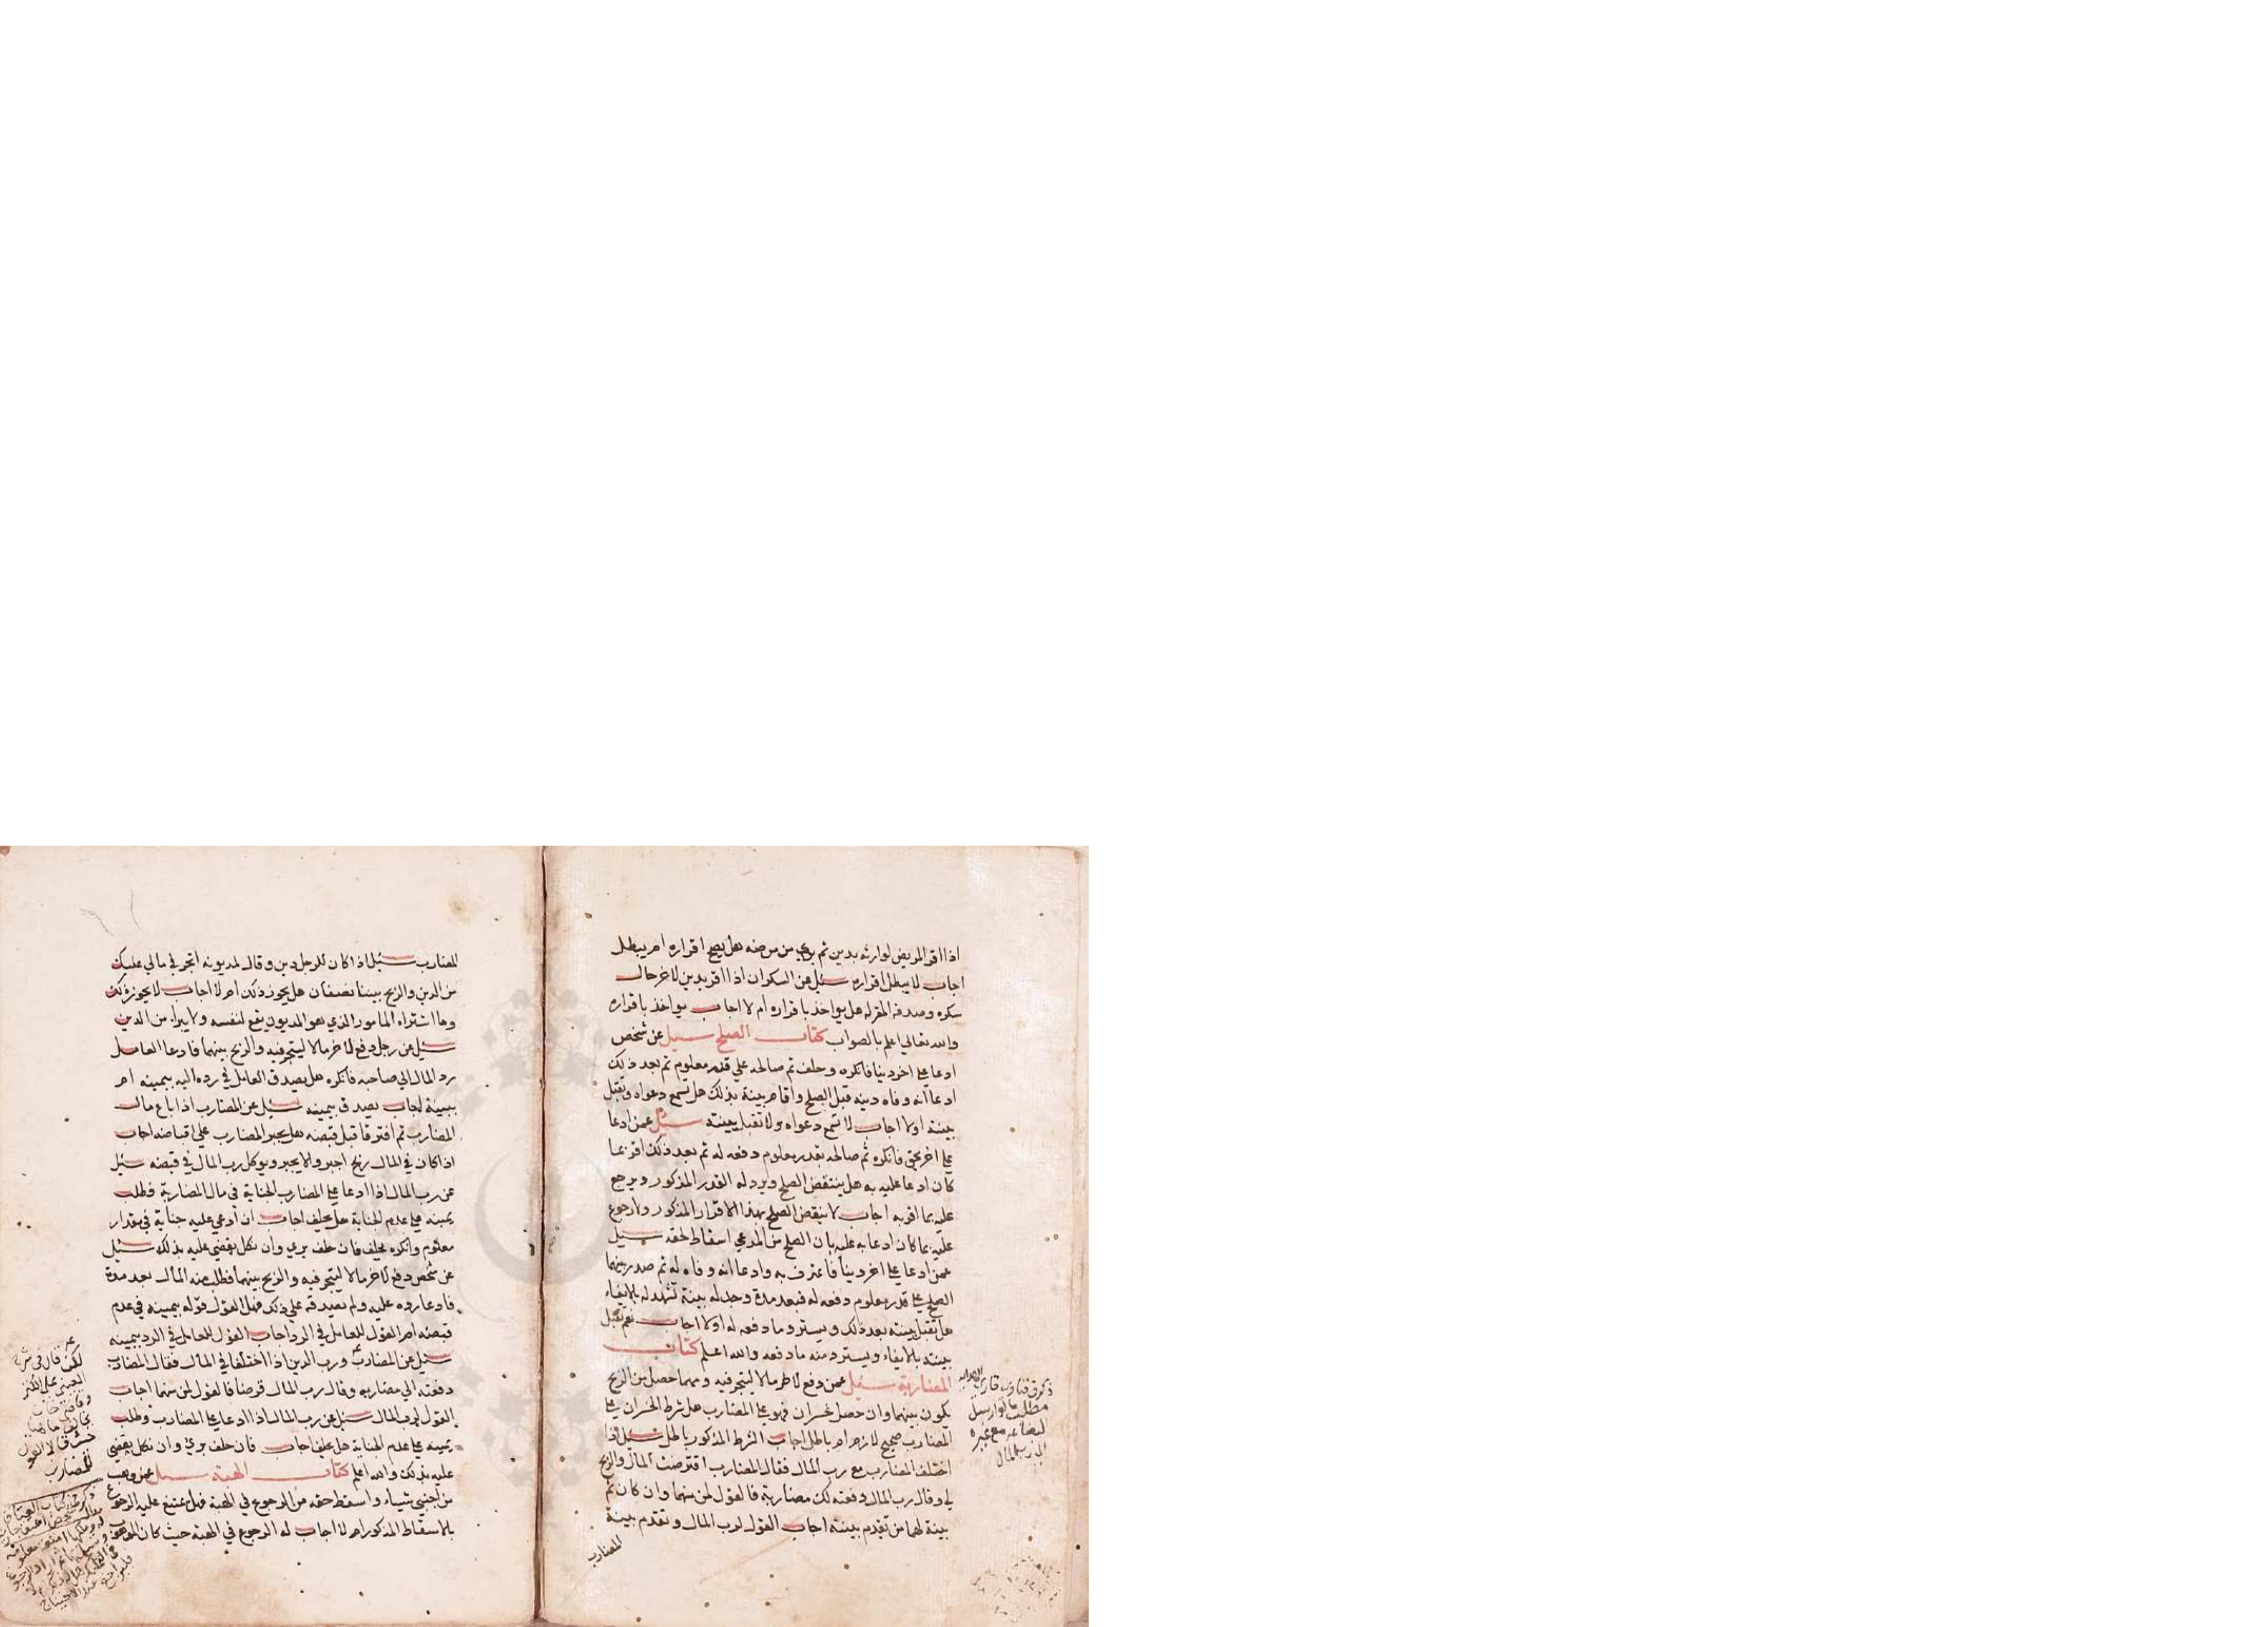 اذا اقر المريض لوارثه بدين ثم بري من مرضه هل يصح اقراره ام يبطل
اجاب لا يبطل اقراره سئل عن السكران اذا اقر بدين لاخر حال
سكره وصدقه المقر له هل يواخذ باقراره ام لا اجاب يواخذ باقراره
والله تعالي اعلم بالصواب كتاب الصلح سيل عن شخص
ادعا علي اخر دينا فانكره وحلف ثم صالحه علي قدر معلوم ثم بعد ذلك
ادعا انه وفاه دينه قبل الصلح واقام بينة بذلك هل تسمع دعواه وتقبل
بينته اولا اجاب لا تسمع دعواه ولا تقبل بينته سئل عمن ادعا
علي اخر بحق فانكره ثم صالحه بقدر معلوم دفعه له ثم بعد ذلك اقر بما
كان ادعا عليه به هل ينتقض الصلح ويرد له القدر المذكور ويرجع
عليه بما اقر به اجاب لا ينتقض الصلح بهذا الاقرار المذكور ولا رجوع
عليه بما كان ادعا به عليه بان الصلح من المدعي اسقاط لحقه سيل
عمن ادعا علي اخر دينا فاعترف به وادعا انه وفاه له ثم صدر بينهما
الصلح علي قدر معلوم دفعه له فبعد مدة وجد له بينة تشهد له بالايفاء
هل تقبل بينته بعد ذلك ويسترد ما دفعه له اولا اجاب نعم تقبل
بينته بالايفاء ويسترد منه ما دفعه والله اعلم كتاب
المضاربة سئل عمن دفع لاخر مالا ليتجر فيه ومهما حصل من الربح
يكون بينهما وان حصل خسران فهو علي المضارب هل شرط الخسران علي
المضارب صحيح لازم ام باطل اجاب الشرط المذكور باطل سئل اذا
اختلف المضارب مع رب المال فقال المضارب اقترضت المال والربح
لي وقال رب المال دفعته لك مضاربة فالقول لمن منهما وان كان ثم
بينة لهما من تقدم بينته اجاب القول لرب المال وتقدم بينة
المضارب
ذكر في فتاوي قاري الهدايه
مطلب ما لو ارسل
البضاعه مع غيره
الي رب المال
المضارب سئل اذا كان للرجل دين وقال لمديونه اتجر في مالي عليك
من الدين والربح بيننا نصفان هل يجوز ذلك ام لا اجاب لا يجوز ذلك
وما اشتراه المامور الذي هو المديون يقع لنفسه ولا يبرا من الدين
سئل عن رجل دفع لاخر مالا ليتجر فيه والربح بينهما فادعا العامل
رد المال الي صاحبه فانكره هل يصدق العامل في رده اليه بيمينه ام
ببينة اجاب يصدق بيمينه سئل عن المضارب اذا باع مال
المضارب ثم افترقا قبل قبضه هل يجبر المضارب علي اقباضه اجاب
اذا كان في المال ربح اجبر والا يجبر ويوكل رب المال في قبضه سئل
عن رب المال اذا ادعا علي المضارب الخيانة في مال المضاربة وطلب
يمينه علي عدم الخيانة هل يحلف اجاب ان ادعي عليه خيانة في مقدار
معلوم وانكره يحلف فان حلف بري وان نكل يقضي عليه بذلك سئل
عن شخص دفع لاخر مالا ليتجر فيه والربح بينهما فطلب منه المال بعد مدة
فادعا رده عليه ولم يصدقه علي ذلك فهل القول قوله بيمينه في عدم
قبضه ام القول للعامل في الرد اجاب القول للعامل في الرد بيمينه
سئل عن المضارب ورب الدين اذا اختلفا في المال فقال المضارب
دفعته الي مضاربه وقال رب المال قرضا فالقول لمن منهما اجاب
القول لرب المال سئل عن رب المال اذا ادعا علي المضارب وطلب
يمينه علي عدم الخيانة هل يحلف اجاب فان حلف بري وان نكل يقضي
عليه بذلك والله اعلم كتاب الهبة سيل عمن وهب
من اجنبي شياء واسقط حقه من الرجوع في الهبة فهل يمتنع عليه الرجوع
بالاسقاط المذكور ام لا اجاب له الرجوع في الهبة حيث كان الموهوب
لكن قال في شرح
العيني علي الكنز
خسرو قالا القول
للمضارب